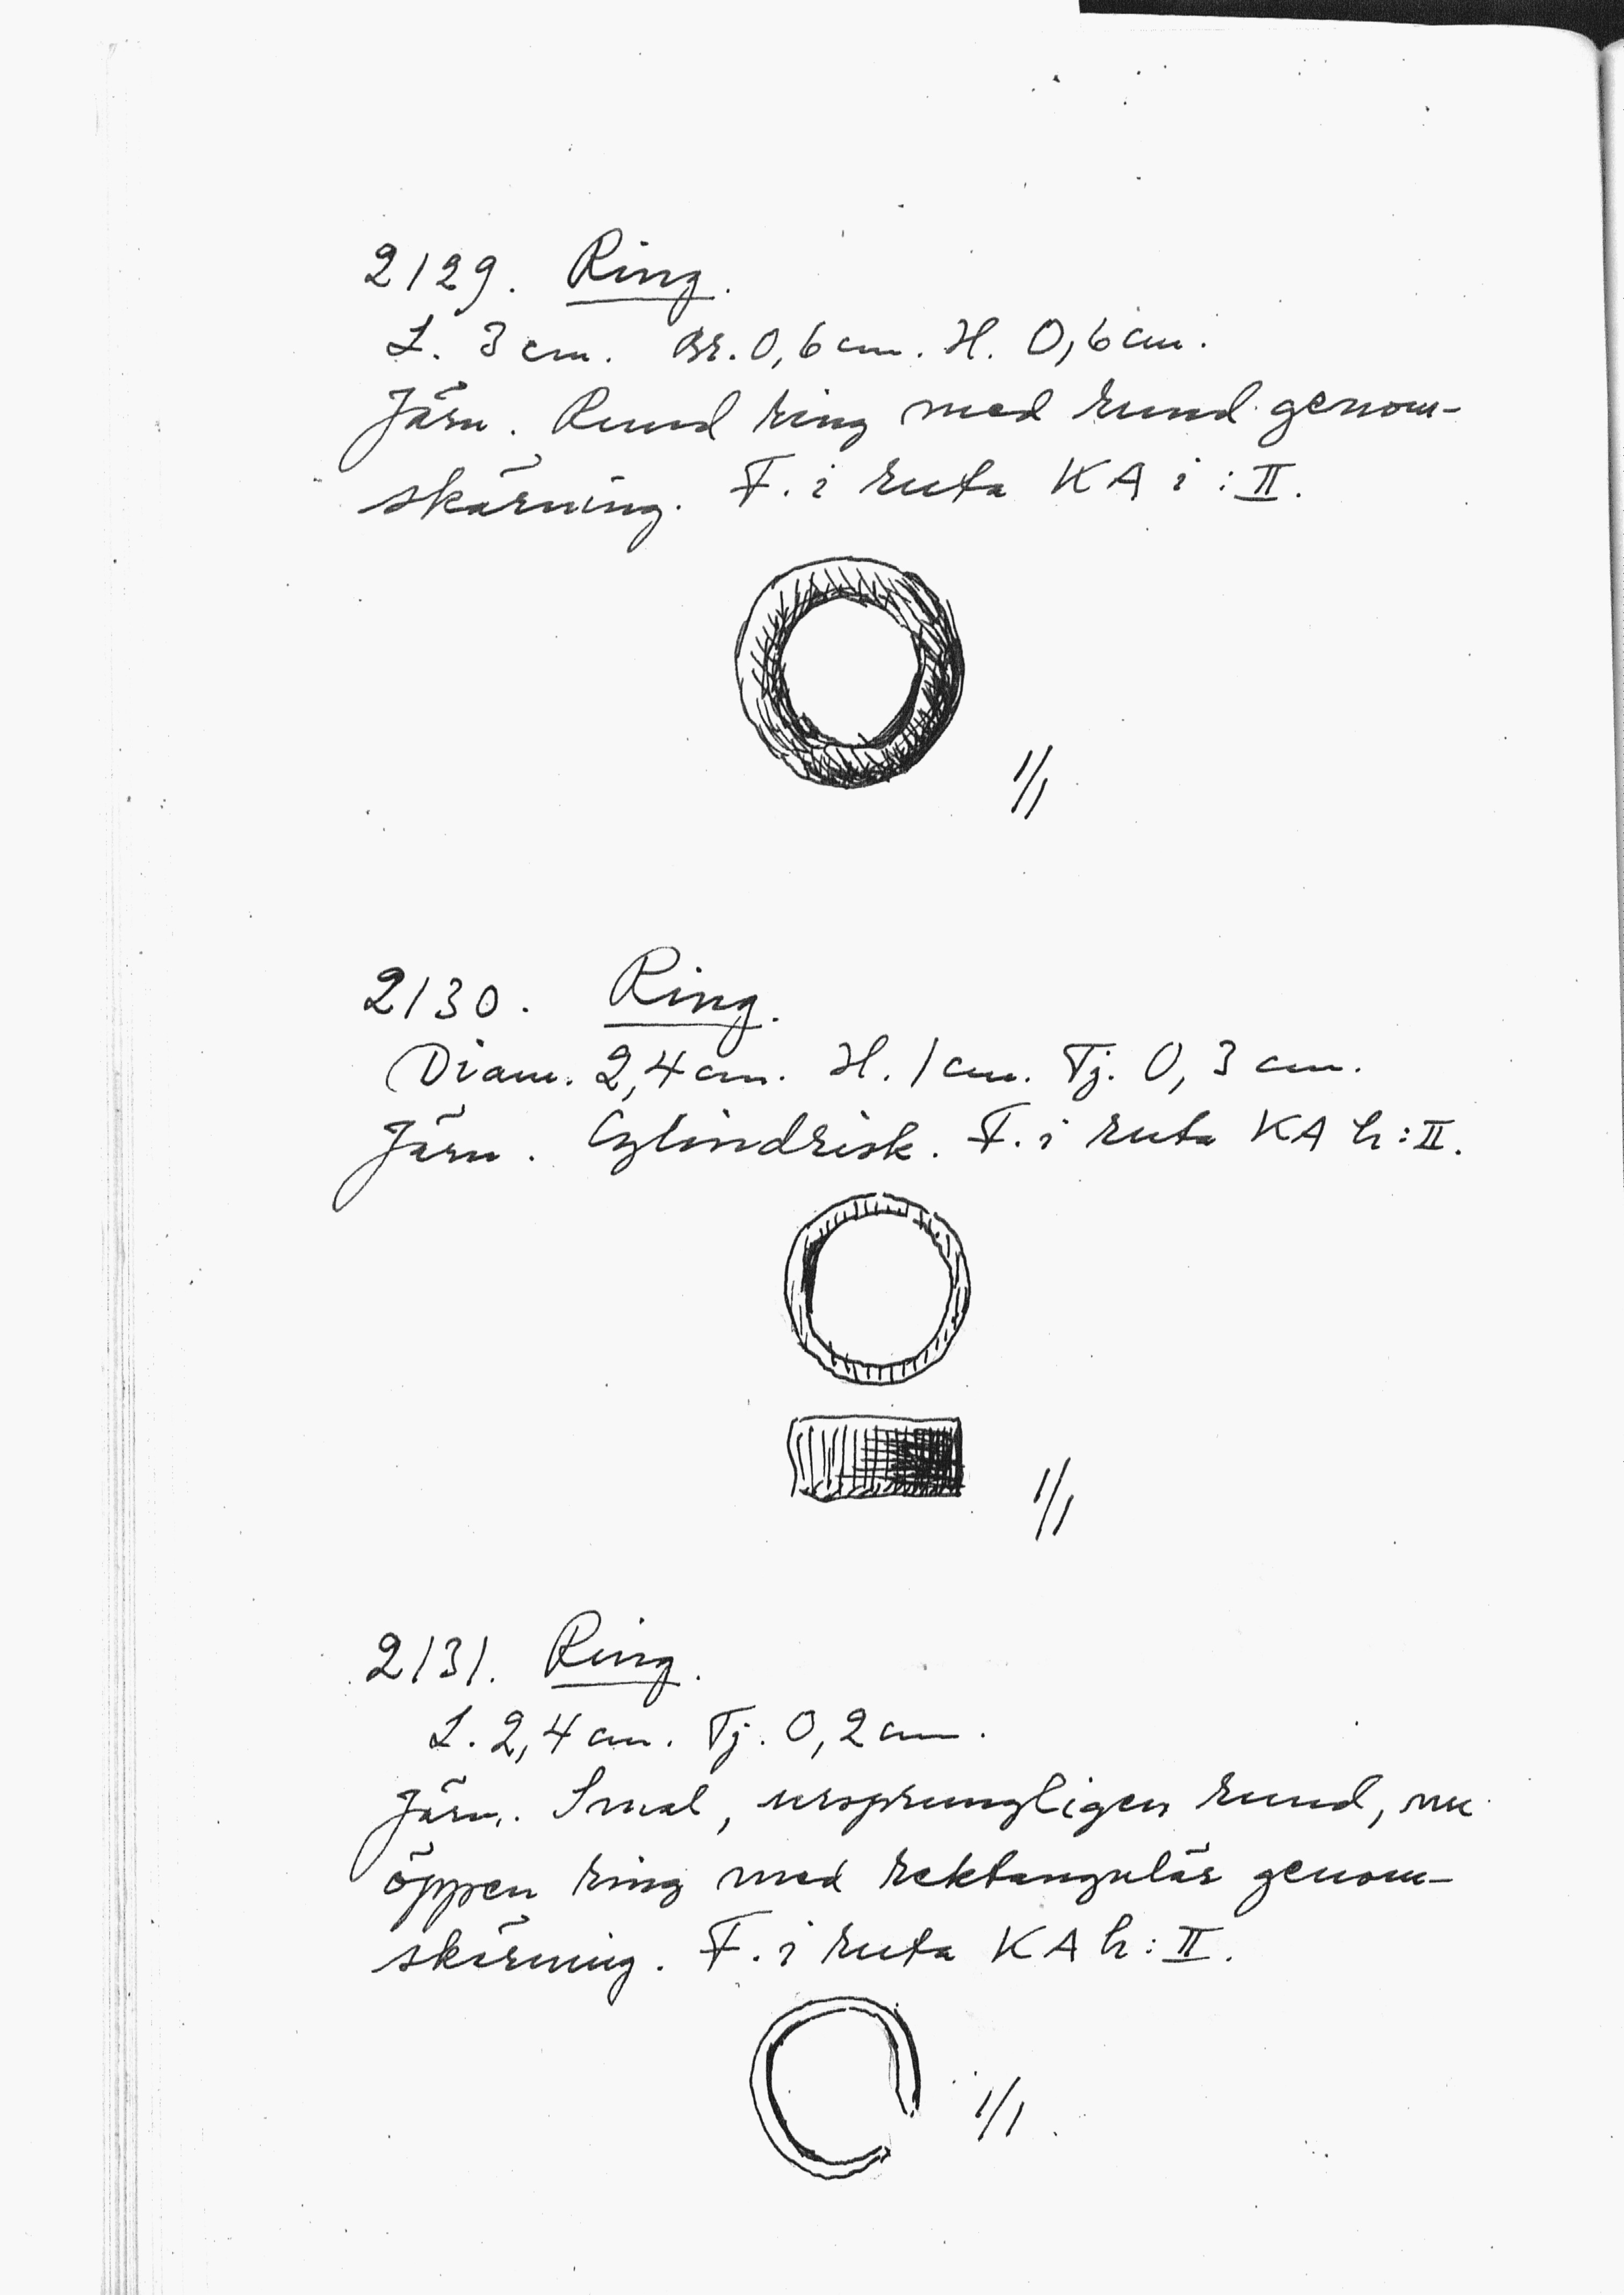 2129. Ring.
L. 3 cm. Br. 0,6 cm. H. 0,6 cm.
Järn. Rund ring med rund genom-
skärning. F. i ruta KA i : II.
1/1
2130. Ring.
Diam. 2,4 cm. H. 1 cm. Tj. 0,3 cm.
Järn. Cylindrisk. F. i ruta KA h : II.
1/1
2131. Ring.
L. 2,4 cm. Tj. 0,2 cm.
Järn. Smal, ursprungligen rund, nu
öppen ring med rektangulär genom-
skärning. F. i ruta KA h : II.
1/1